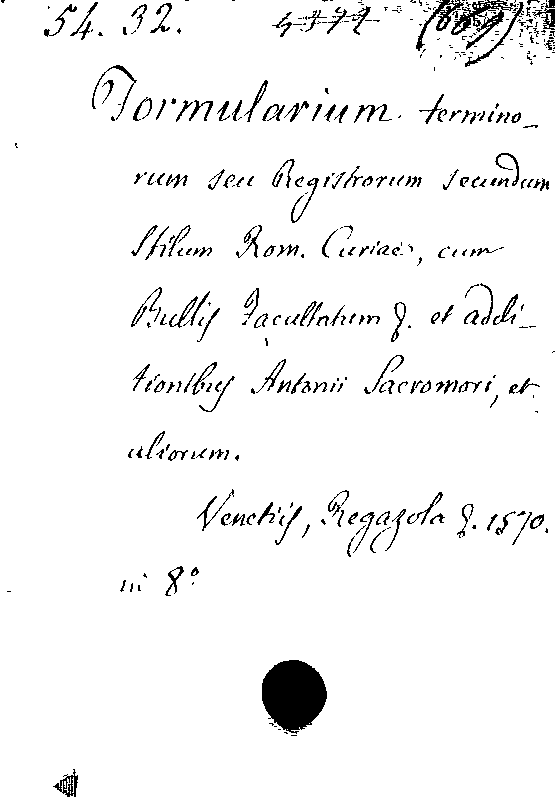 54. 32. 4372 (669)
Formularium termino_
rum seu Registrorum secundum
Stilum Rom. Curiae, cum
Bullis Facultatum &. et addi_
tionibus Antonii Sacromori, et
aliorum.
Venetiis, Regazola &. 1570.
in 8°